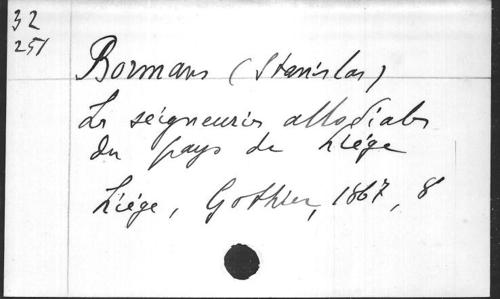 32
251
Bormans (Stanislas)
Les seigneuries allodiales
du pays de Liége
Liége, Gothier, 1867, 8